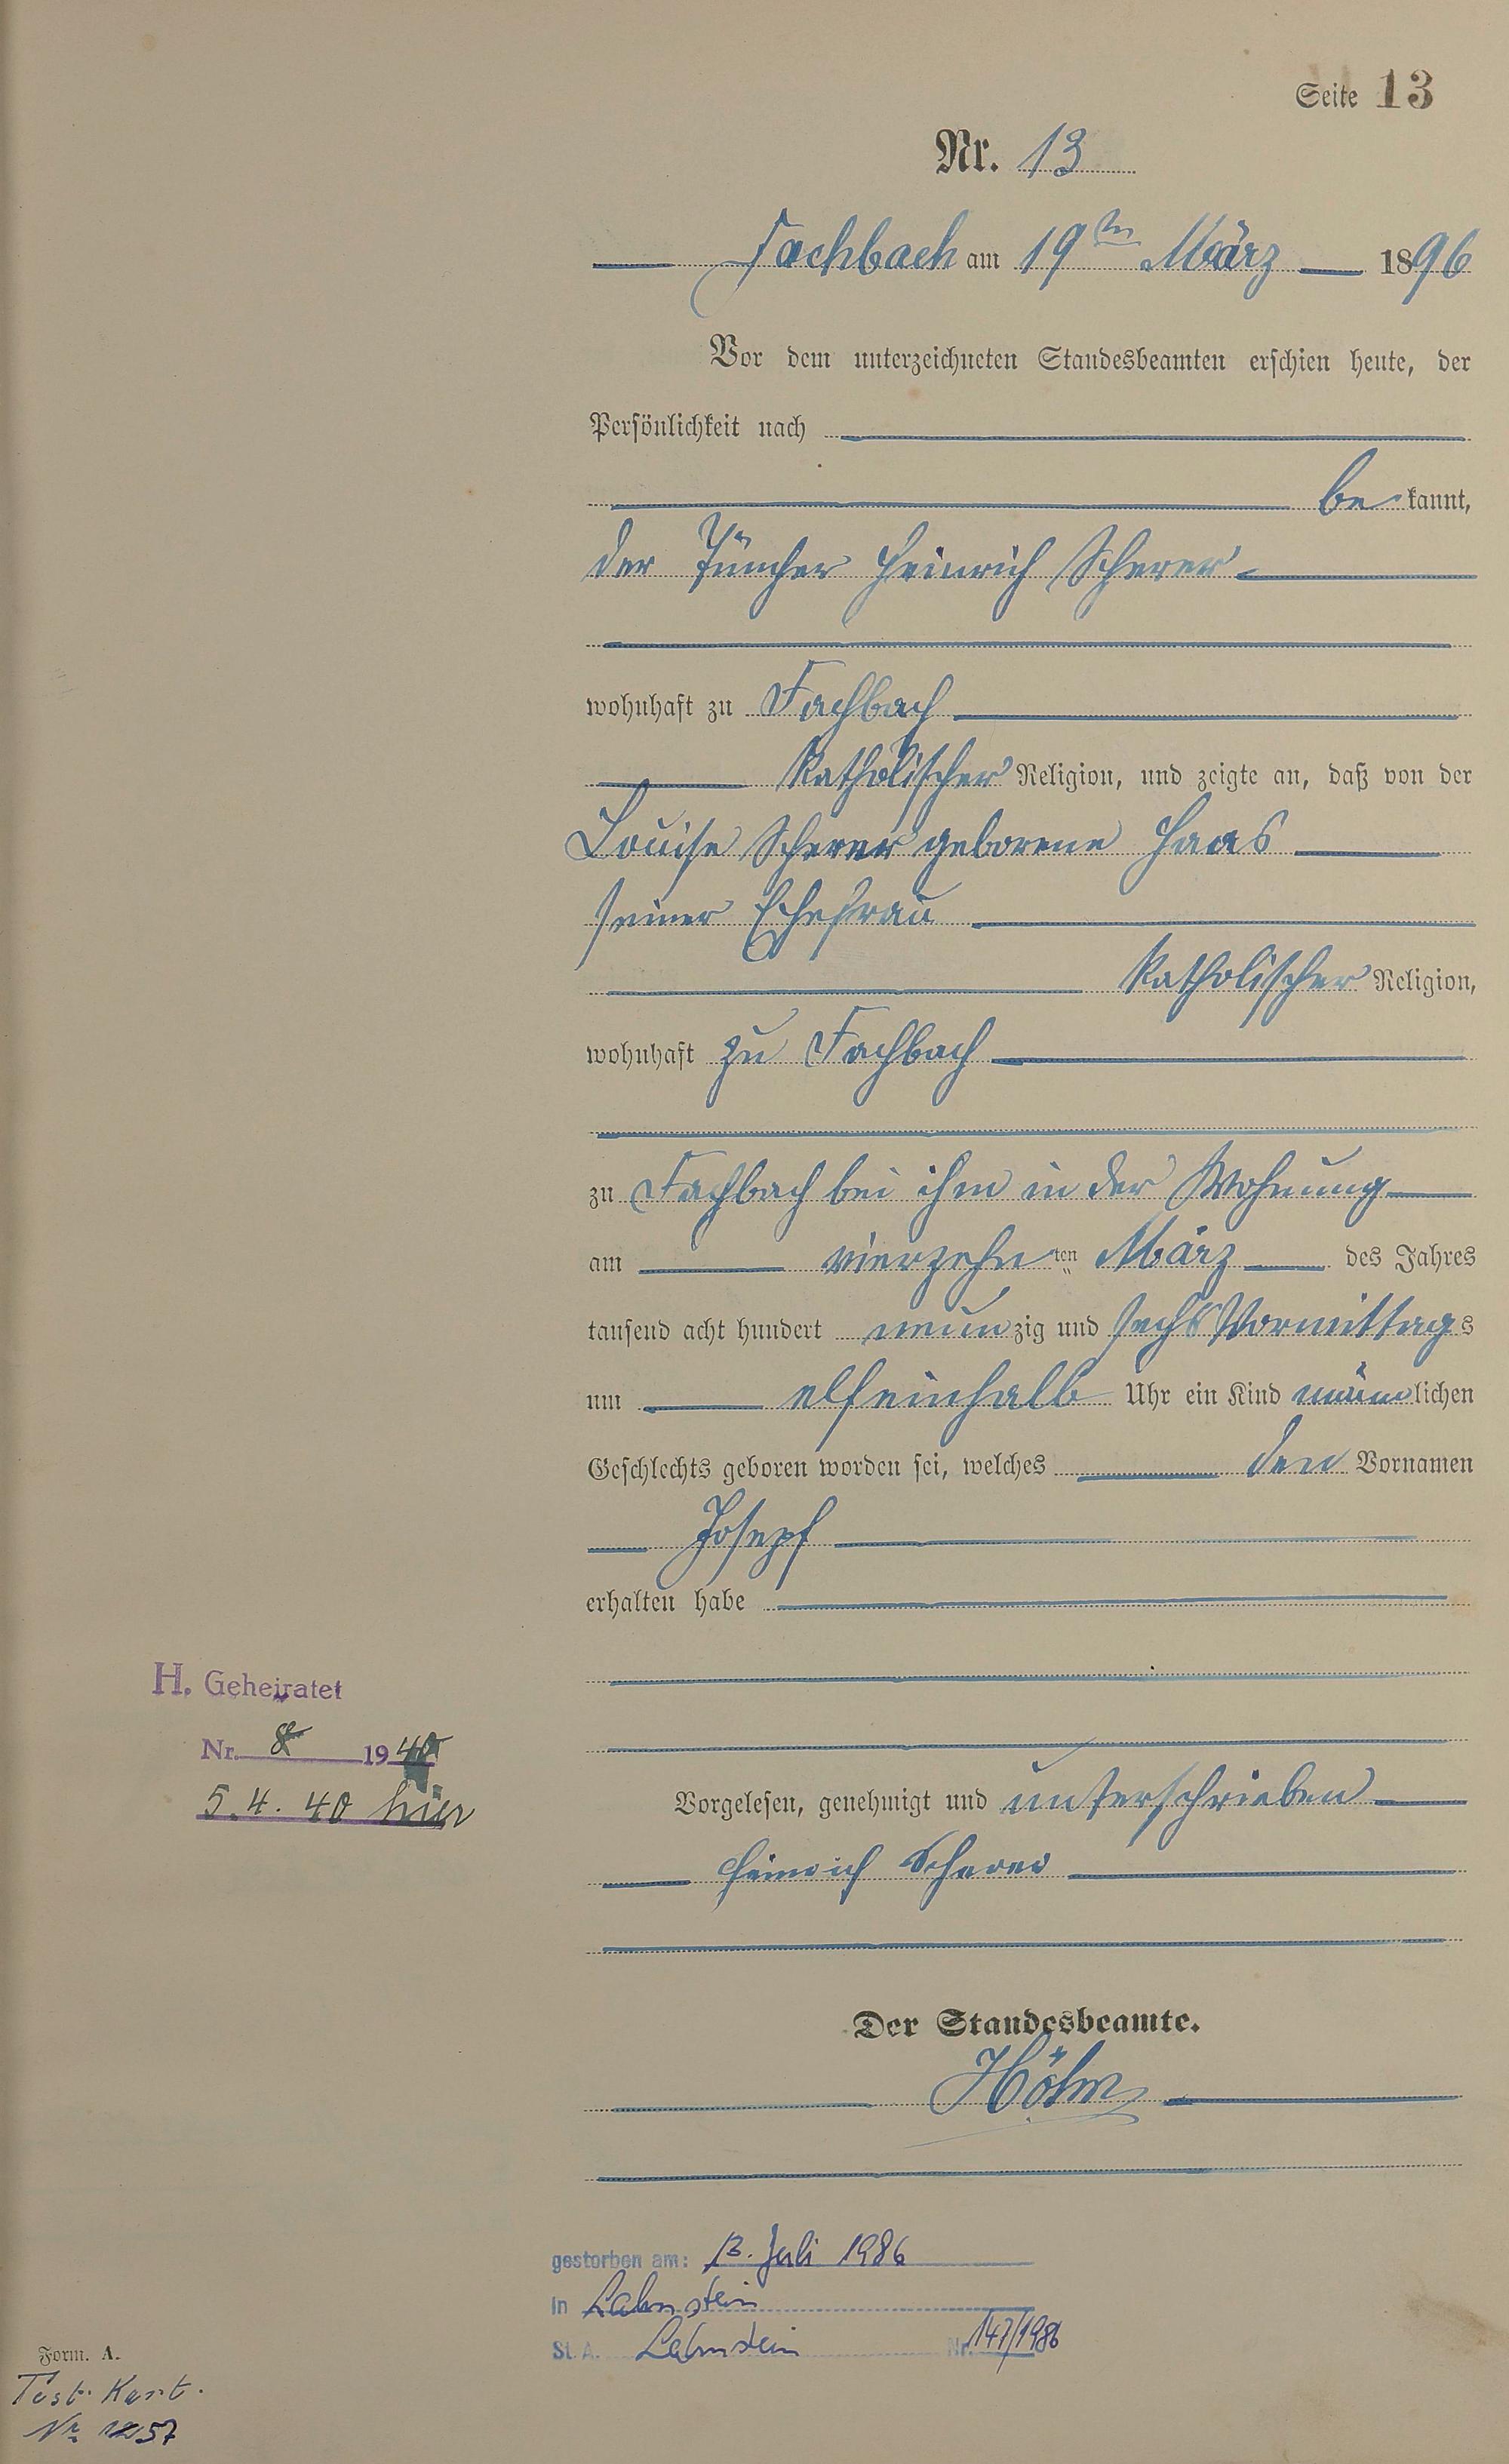 Seite 13
Nr. 13
Fachbach am 19ten März 1896
Vor dem unterzeichneten Standesbeamten erschien heute, der
Persönlichkeit nach
bekannt,
der Tüncher Heinrich Scherer
wohnhaft zu Fachbach
katholischer Religion, und zeigte an, daß von der
Louise Scherer geborene Haas
seiner Ehefrau
katholischer Religion,
wohnhaft zu Fachbach
zu Fachbach bei ihm in der Wohnung
am vierzehnten März des Jahres
tausend acht hundert neunzig und sechs Vormittags
um elfeinhalb Uhr ein Kind männlichen
Geschlechts geboren worden sei, welches den Vornamen
Josepf
erhalten habe
H. Geheiratet
Nr. 8 1940
5.4.40 hier
Vorgelesen, genehmigt und unterschrieben
Heinrich Scherer
Der Standesbeamte.
gestorben am: 13. Juli 1986
in Lahnstein
St. A. Lahnstein Nr. 147/1986
Form. A.
Test. Kart.
Nr